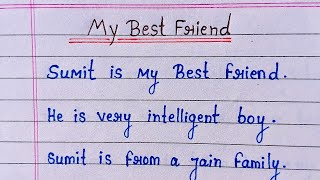 My Best Friend
Sumit is my Best Friend.
He is very intelligent boy.
Sumit is from a Jain Family.